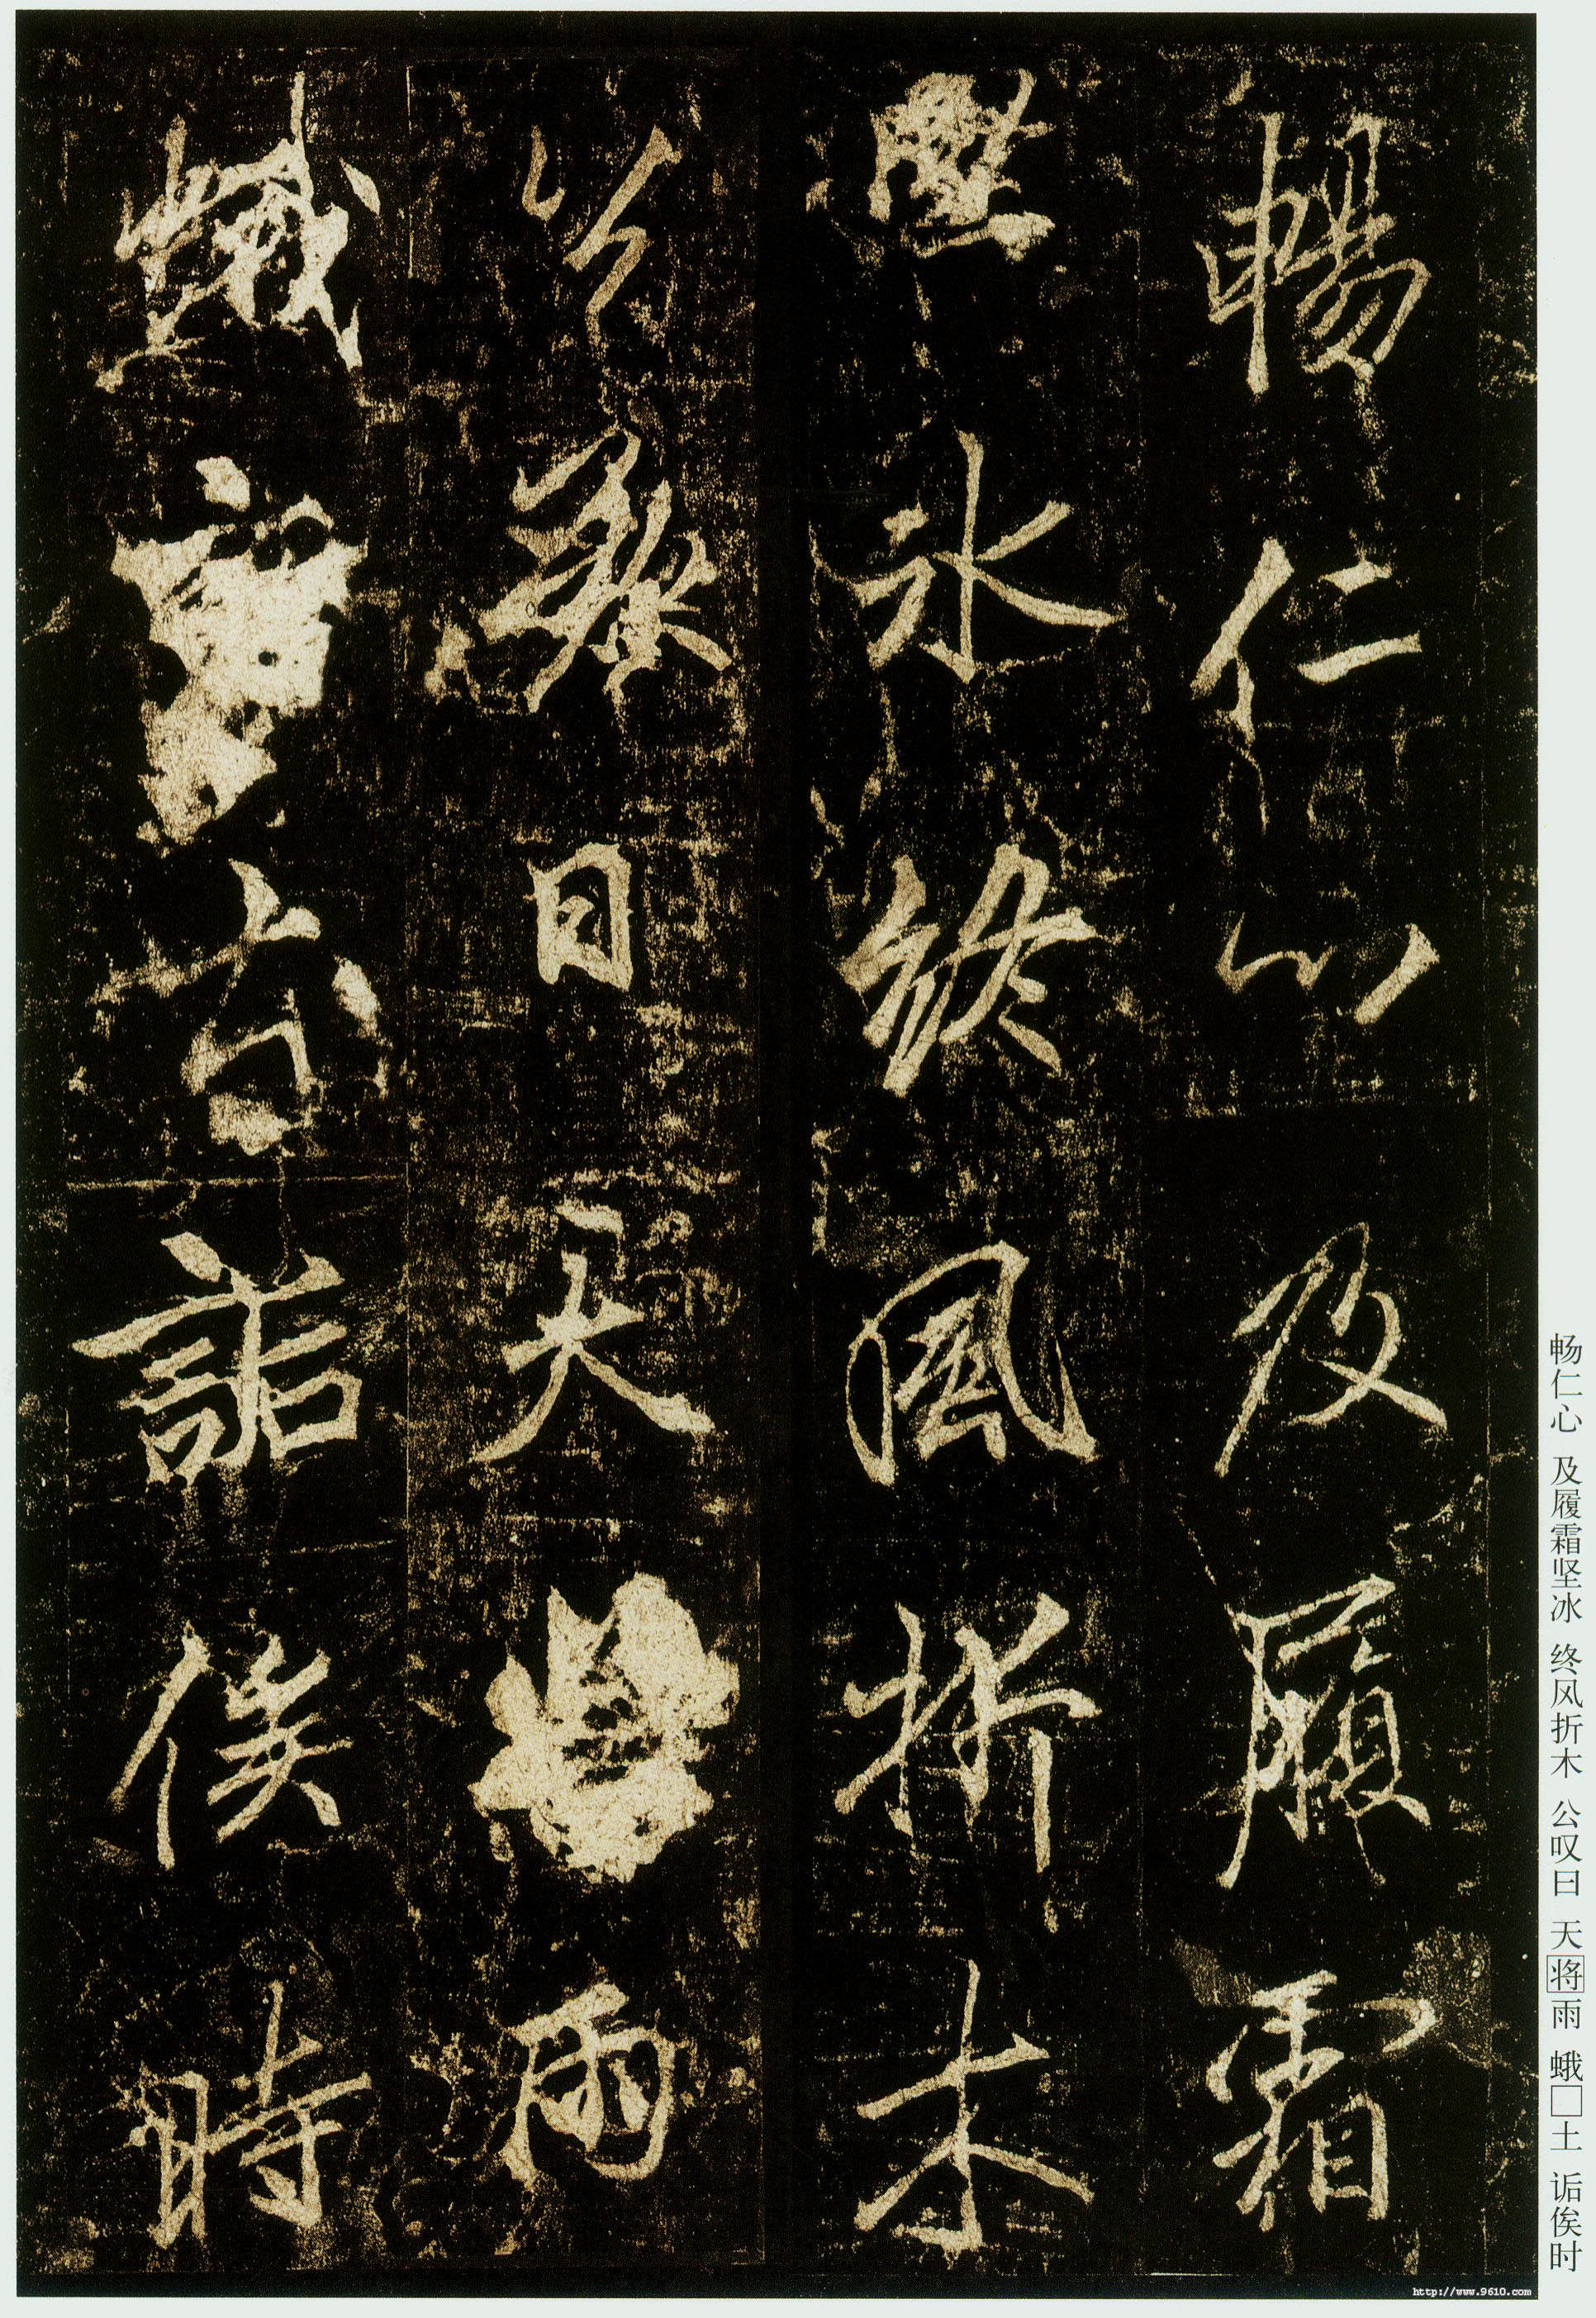 暢仁心及履霜
堅冰終風折木
公歎曰天雨
蛾穴詬俟時
畅仁心 及履霜坚冰 终风折木 公叹曰 天将雨 蛾□土 诟俟时
http://www.9610.com